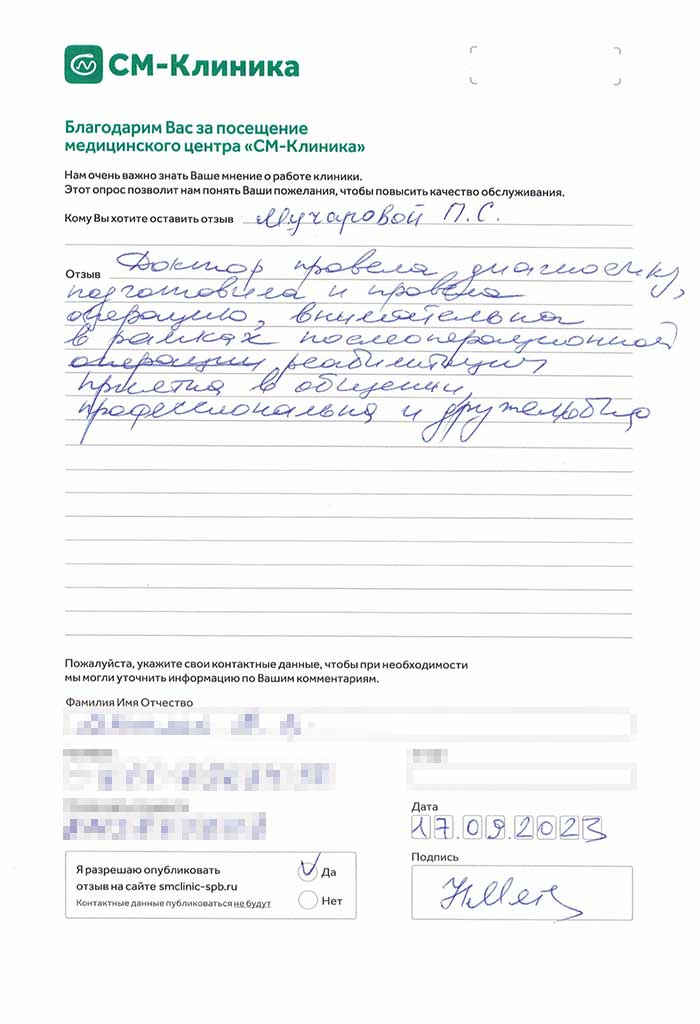 СМ-Клиника
Благодарим Вас за посещение
медицинского центра «СМ-Клиника»
Нам очень важно знать Ваше мнение о работе клиники.
Этот опрос позволит нам понять Ваши пожелания, чтобы повысить качество обслуживания.
Кому Вы хотите оставить отзыв Мучаровой П.С.
Отзыв Доктор провела диагностику,
подготовила и провела
операцию, внимательна
в рамках послеоперационной
операции реабилитации,
приятна в общении,
профессиональна и дружелюбна
Пожалуйста, укажите свои контактные данные, чтобы при необходимости
мы могли уточнить информацию по Вашим комментариям.
Фамилия Имя Отчество
Дата
17.09.2023
Я разрешаю опубликовать
отзыв на сайте smclinic-spb.ru
Контактные данные публиковаться не будут
Да
Нет
Подпись